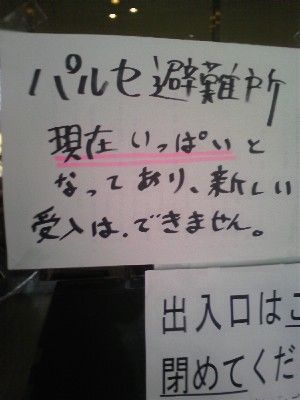 パルセ避難所
現在いっぱいと
なっており、新しい
受入は、できません。
出入口はこ
閉めてくだ